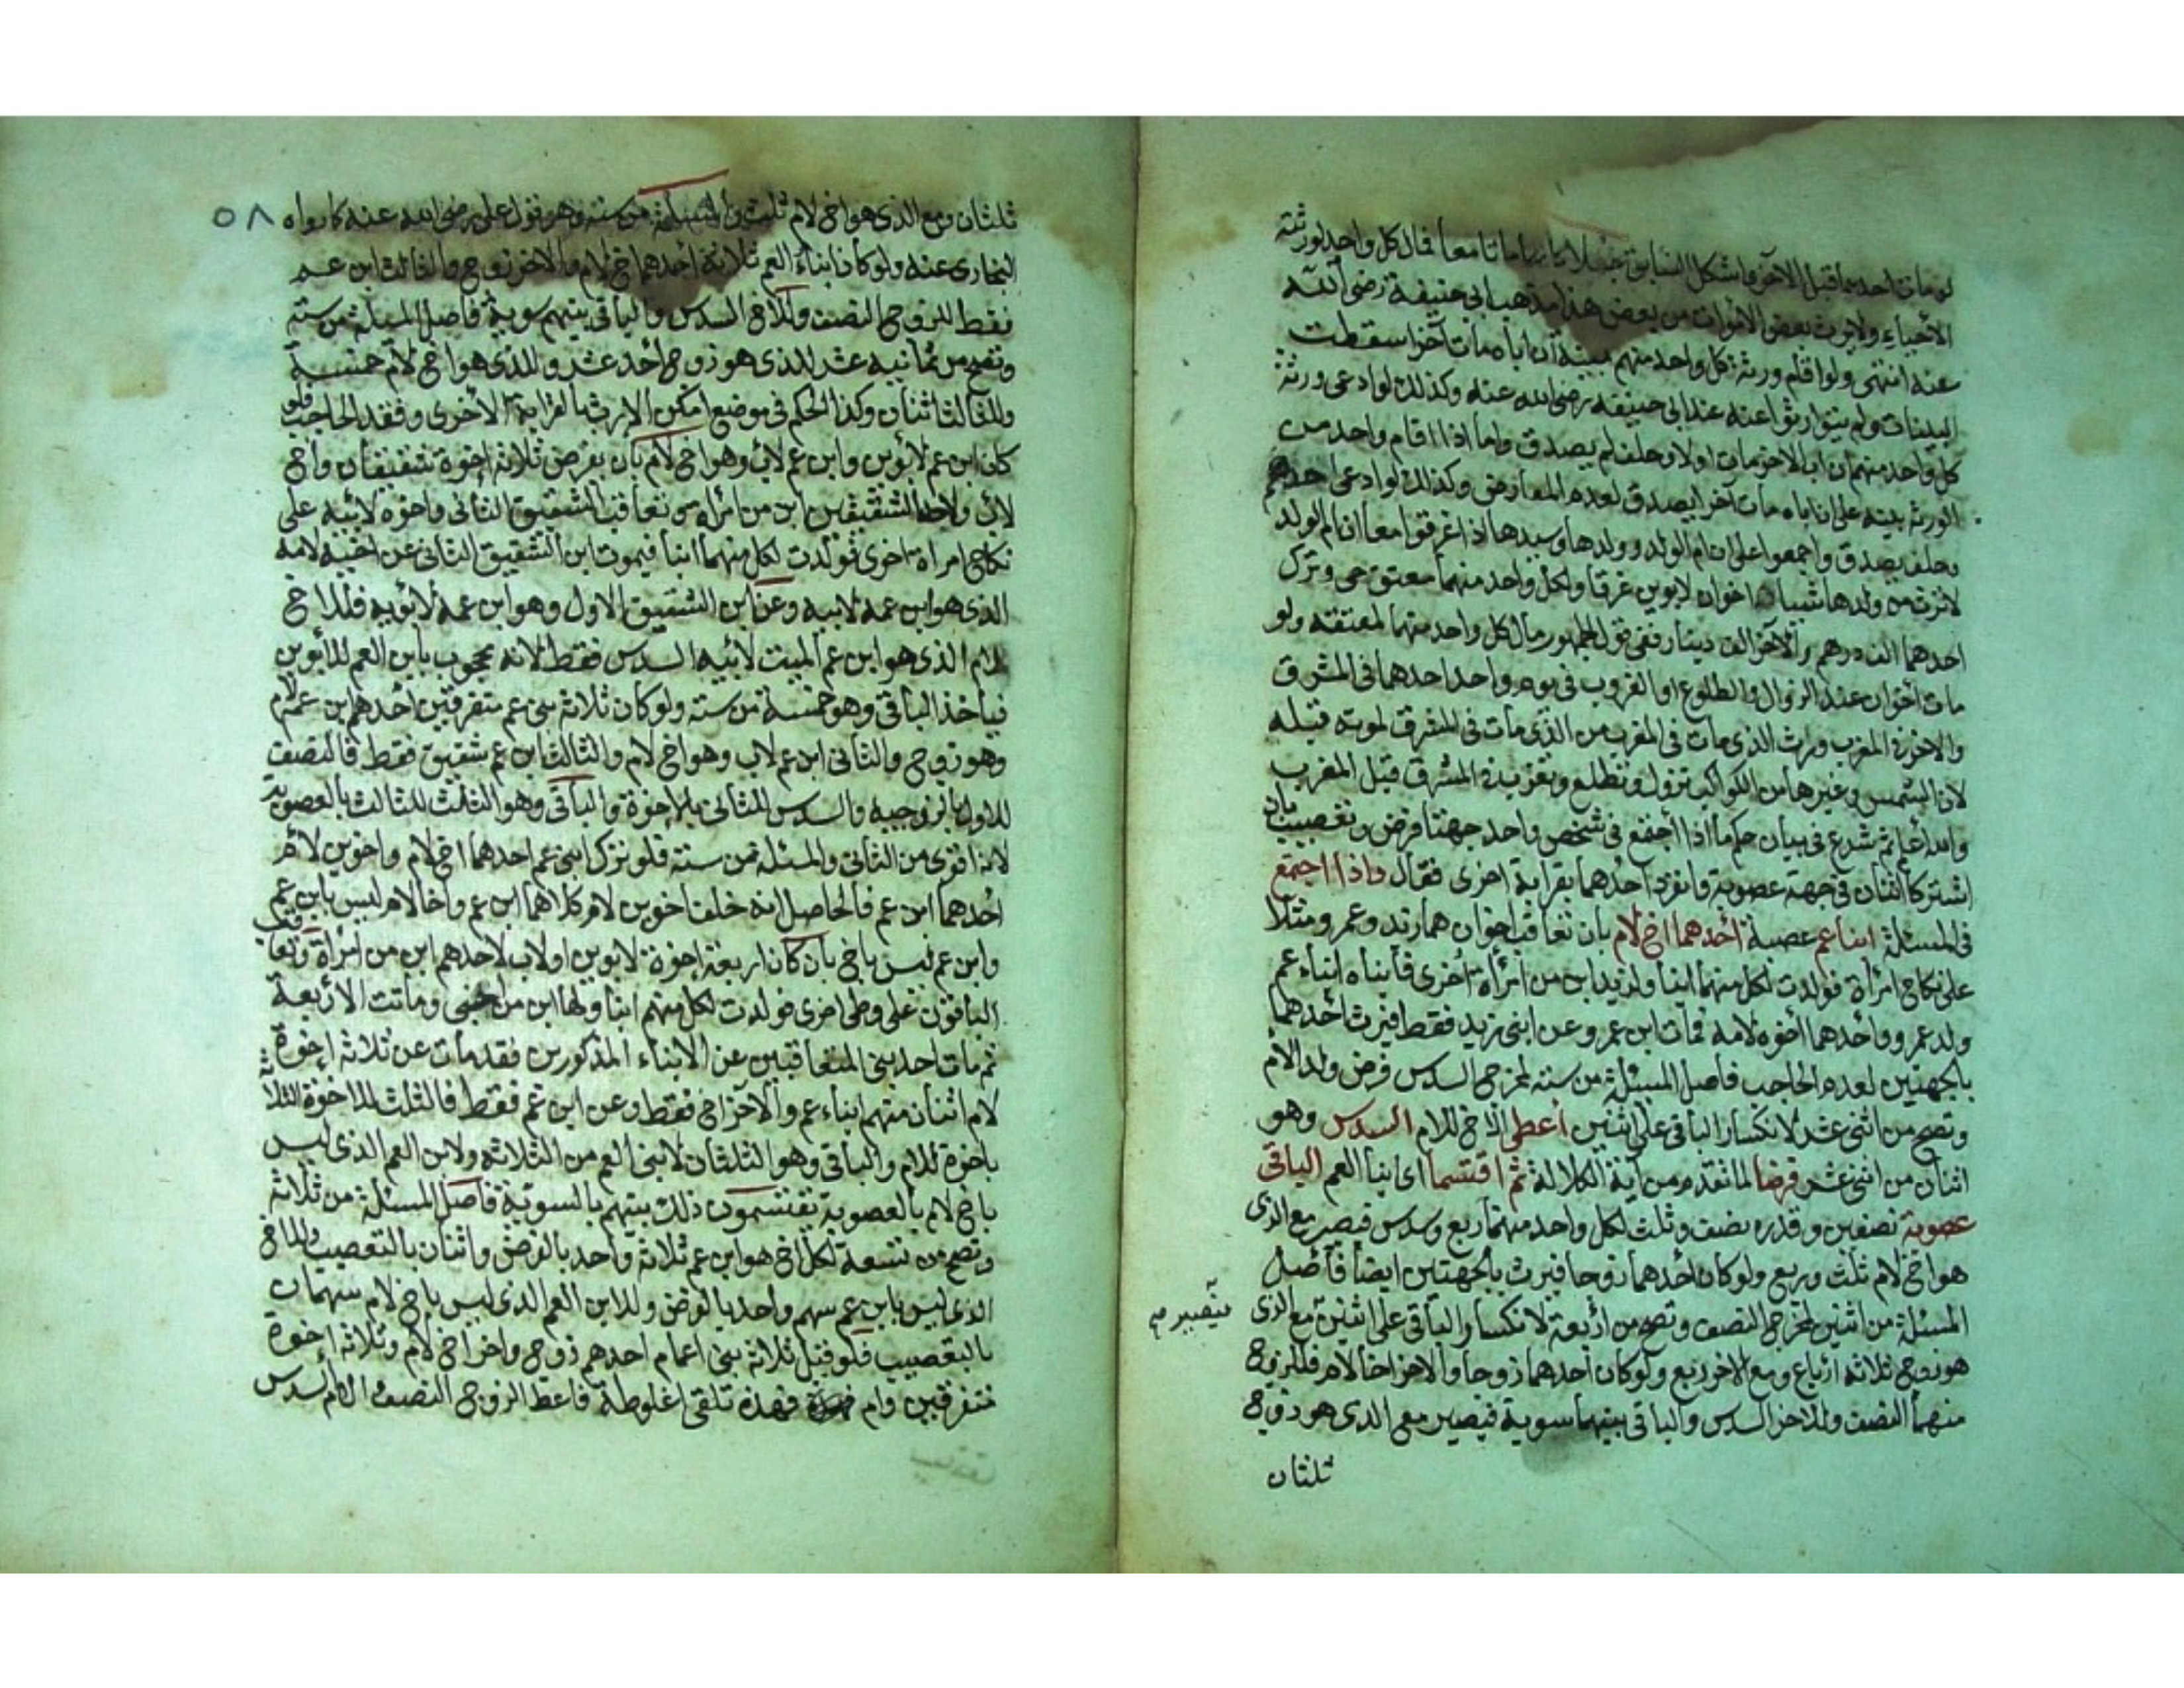 لو مات احدهما قبل الآخر واشكل السابق جعلا كانهما ماتا معا فمال كل واحد لورثته
الاحياء ولا يرث بعض الاموات من بعض هذا مذهب ابى حنيفة رضى الله
عنه انتهى ولو اقام ورثة كل واحد منهم بينة ان اباه مات آخرا سقطت
البينات ولم يتوارثوا عنه عند ابى حنيفه رضى الله عنه وكذلك لو ادعى ورثة
كل واحد منهم ان اب الاخر مات اولا وحلف لم يصدق واما اذا اقام واحد من
الورثة بينه على ان اباه مات آخرا يصدق لعدم المعارض وكذلك لو ادعى احدهم
وحلف يصدق واجمعوا على ان ام الولد وولدها وسيدها اذا غرقوا معا ان ام الولد
لا ترث من ولدها شيئا اخوان لابوين غرقا ولكل واحد منهما معتق حى وترك
احدهما الف درهم والآخر الف دينار ففى قول الجمهور مال كل واحد منهما لمعتقه ولو
مات اخوان عند الزوال او الطلوع او الغروب فى يوم واحد احدهما فى المشرق
والاخر فى المغرب ورث الذى مات فى المغرب من الذى مات فى المشرق لموته قبله
لان الشمس وغيرها من الكواكب تزول وتطلع وتغرب فى المشرق قبل المغرب
والله اعلم ثم شرع فى بيان حكم ما اذا اجتمع فى شخص واحد جهتا فرض وتعصيب بان
اشتركا اثنان فى جهة عصوبة وانفرد احدهما بقرابة اخرى فقال واذا اجتمع
فى المسئلة ابنا عم عصبة احدهما اخ لام بان تعاقب اخوان هما زيد وعمرو مثلا
على نكاح امرأة فولدت لكل منهما ابنا ولزيد ابن من امرأة اخرى فأبناه ابناء عم
ولد عمرو واحدهما اخوه لامه فمات ابن عمرو عن ابنى زيد فقط فيرث احدهما
بالجهتين لعدم الحاجب فاصل المسئلة من سته لمخرج السدس فرض ولد الام
وتصح من اثنى عشر لانكسار الباقى على اثنين أعطى الاخ للام السدس وهو
اثنان من اثنى عشر فرضا لما تقدم من آية الكلالة ثم اقتسما اى ابنا العم الباقى
عصوبة نصفين وقدره نصف وثلث لكل واحد منهما ربع وسدس فيصير مع الذى
هو اخ لام ثلث وربع ولو كان احدهما زوجا فيرث بالجهتين ايضا فأصل
المسئلة من اثنين لمخرج النصف وتصح من أربعة لانكسار الباقى على اثنين مع الذى
فيصير مع
هو زوج ثلاثة ارباع ومع الاخر ربع ولو كان احدهما زوجا والاخر اخا لام فللزوج
منهما النصف وللاخر السدس والباقى بينهما سوية فيصير مع الذى هو زوج
ثلثان
٥٨
ثلثان ومع الذى هو اخ لام ثلث والمسئلة من ستة وهو قول على رضى الله عنه كما رواه
البخارى عنه ولو كان ابناء العم ثلاثة احدهما اخ لام والاخر زوج والثالث ابن عم
فقط للزوج النصف وللاخ السدس والباقى بينهم سوية فاصل المسئلة من سته
وتصح من ثمانيه عشر للذى هو زوج أحد عشر وللذى هو اخ لام خمسة
وللثالث اثنان وكذا الحكم فى موضع امكن الارث بالقرابة الأخرى وفقد الحاجب فلو
كان ابن عم لابوين وابن عم لاب وهو اخ لام بان يفرض ثلاثة اخوة شقيقان واخ
لاب ولاحد الشقيقين ابن من امرأه ثم تعاقب الشقيق الثانى واخوه لابيه على
نكاح امراة اخرى فولدت لكل منهما ابنا فيموت ابن الشقيق الثانى عن اخيه لامه
الذى هو ابن عمه لابيه وعن ابن الشقيق الاول وهو ابن عمه لابويه فللاخ
للام الذى هو ابن عم الميت لابيه السدس فقط لانه محجوب بابن العم للابوين
فيأخذ الباقى وهو خمسة من سته ولو كان ثلاثة بنى عم متفرقين احدهم ابن عم لام
وهو زوج والثانى ابن عم لاب وهو اخ لام والثالث ابن عم شقيق فقط فالنصف
للاول بالزوجيه والسدس للثانى بالاخوة والباقى وهو الثلث للثالث بالعصوبة
لانه اقوى من الثانى والمسئلة من ستة فلو ترك ابنى عم احدهما اخ لام واخوين لام
احدهما ابن عم فالحاصل انه خلف اخوين لام كلاهما ابن عم واخا لام ليس بابن عم
وابن عم ليس باخ بان كان اربعة اخوة لابوين او لاب لاحدهم ابن من امرأة وتعاقب
الباقون على وطى اخرى فولدت لكل منهم ابنا ولها ابن من اجنبى وماتت الاربعة
ثم مات احد بنى المتعاقبين عن الابناء المذكورين فقد مات عن ثلاثة اخوة
لام اثنان منهم ابناء عم والآخر اخ فقط وعن ابن عم فقط فالثلث للاخوة الثلاثة
باخوة للام والباقى وهو الثلثان لابنى العم من الثلاثة ولابن العم الذى ليس
باخ لام بالعصوبة يقتسمون ذلك بينهم بالسوية فاصل المسئلة من ثلاثة
وتصح من تسعة لكل اخ هو ابن عم ثلاثة واحد بالفرض واثنان بالتعصيب وللاخ
الذى ليس بابن عم سهم واحد بالفرض وللابن العم الذى ليس باخ لام سهمان
بالتعصيب فلو قيل ثلاثة بنى اعمام احدهم زوج واخر اخ لام وثلاثة اخوة
متفرقين وام فهذه تلقى اغلوطة فاعط الزوج النصف والام السدس